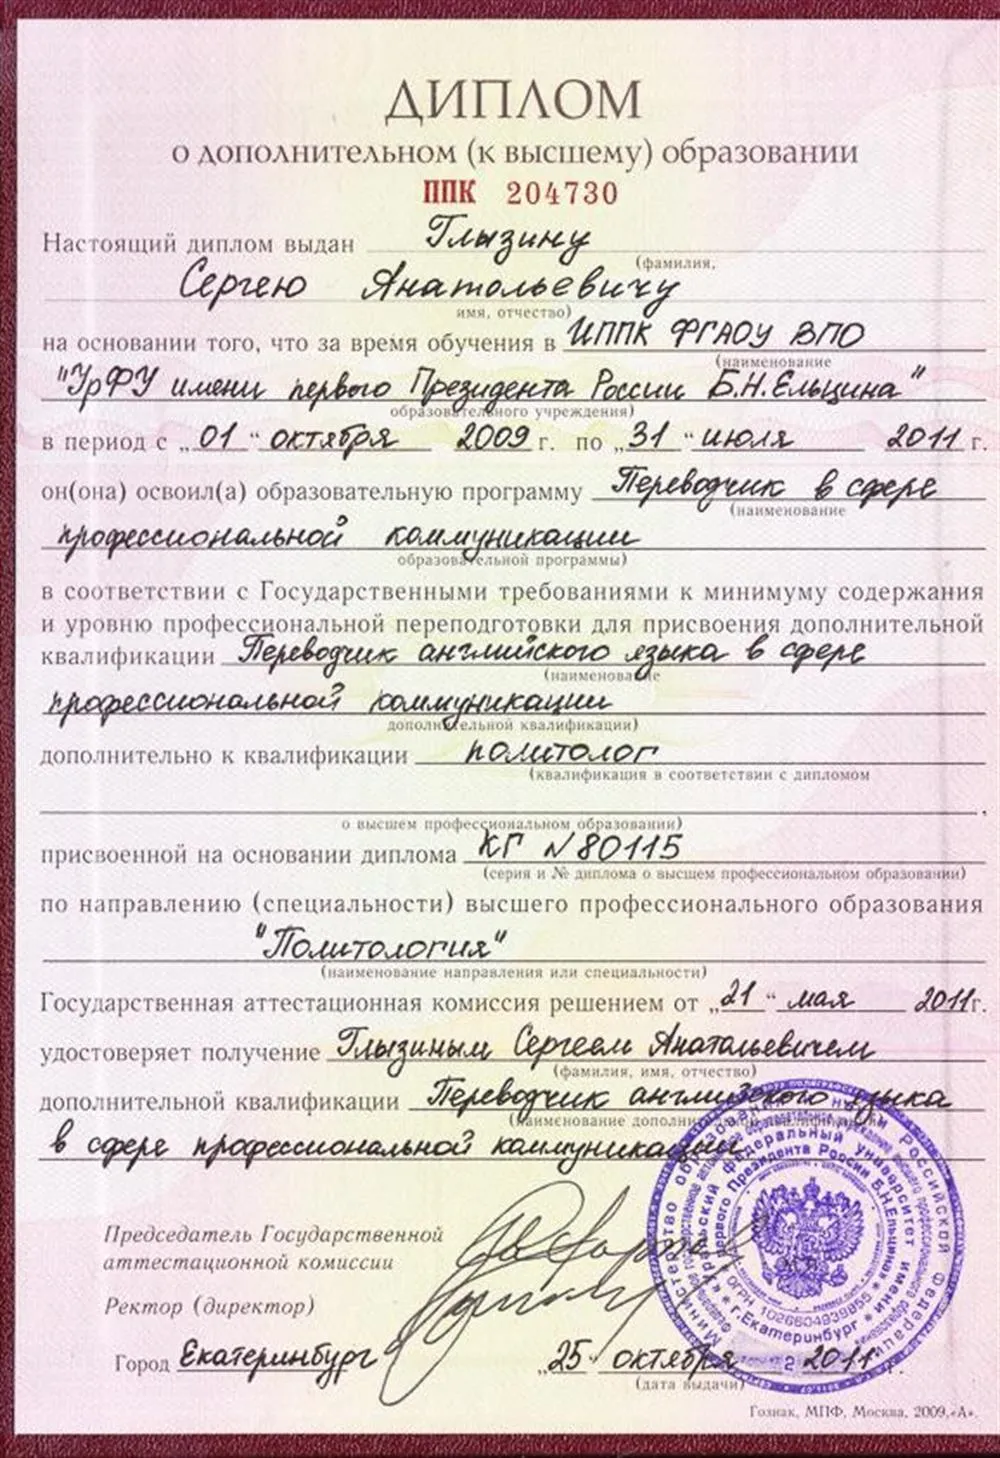 ДИПЛОМ
о дополнительном (к высшему) образовании
ППК 204730
Настоящий диплом выдан Глызину
(фамилия,
Сергею Анатольевичу
имя, отчество)
на основании того, что за время обучения в ИППК ФГАОУ ВПО
(наименование
"УрФУ имени первого Президента России Б.Н.Ельцина"
образовательного учреждения)
в период с „01" октября 2009 г. по „31" июля 2011 г.
он(она) освоил(а) образовательную программу Переводчик в сфере
(наименование
профессиональной коммуникации
образовательной программы)
в соответствии с Государственными требованиями к минимуму содержания
и уровню профессиональной переподготовки для присвоения дополнительной
квалификации Переводчик английского языка в сфере
(наименование
профессиональной коммуникации
дополнительной квалификации)
дополнительно к квалификации политолог
(квалификация в соответствии с дипломом
о высшем профессиональном образовании)
присвоенной на основании диплома КГ №80115
(серия и № диплома о высшем профессиональном образовании)
по направлению (специальности) высшего профессионального образования
"Политология"
(наименование направления или специальности)
Государственная аттестационная комиссия решением от „21" мая 2011г.
удостоверяет получение Глызиным Сергеем Анатольевичем
(фамилия, имя, отчество)
дополнительной квалификации Переводчик английского языка
(наименование дополнительной квалификации)
в сфере профессиональной коммуникации
Председатель Государственной
аттестационной комиссии
Ректор (директор)
М.П.
Город Екатеринбург „25" октября 2011 г.
(дата выдачи)
Министерство образования и науки Российской Федерации
Уральский федеральный университет имени
первого Президента России Б.Н.Ельцина
ОГРН 1026604939855
г.Екатеринбург
2
Гознак, МПФ, Москва, 2009,«А».